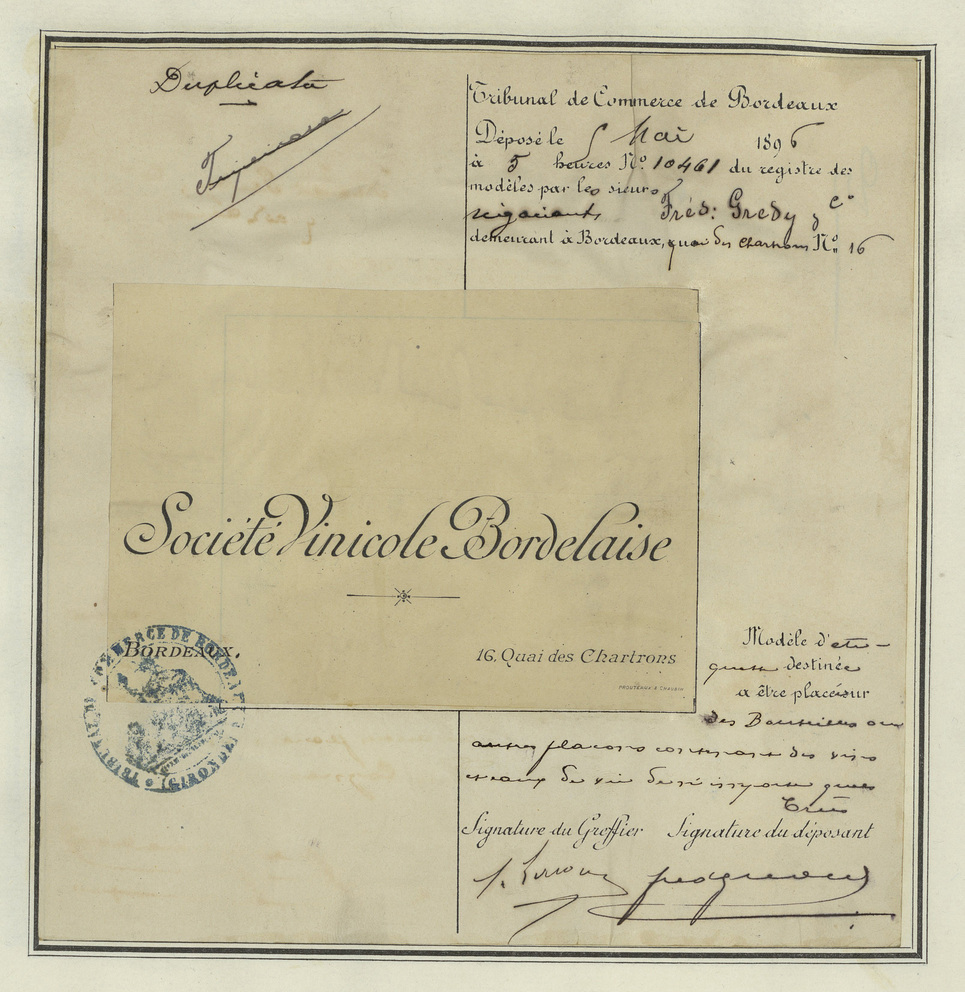 Duplicata
Tribunal de Commerce de Bordeaux
Déposé le Mai 1896
à 5 heures No. 10461 du registre des
modèles par les sieurs
négociants Fréd: Gredy & Co
demeurant à Bordeaux, quai des Chartrons No. 16
Société Vinicole Bordelaise
BORDEAUX.
16, Quai des Chartrons
TRIBUNAL DE COMMERCE DE BORDEAUX (GIRONDE)
Modèle d'éti-
quette destinée
à être placée sur
des Bouteilles ou
autres flacons contenant des vins
et eaux de vie de n'importe quel
Crus
Signature du Greffier Signature du déposant